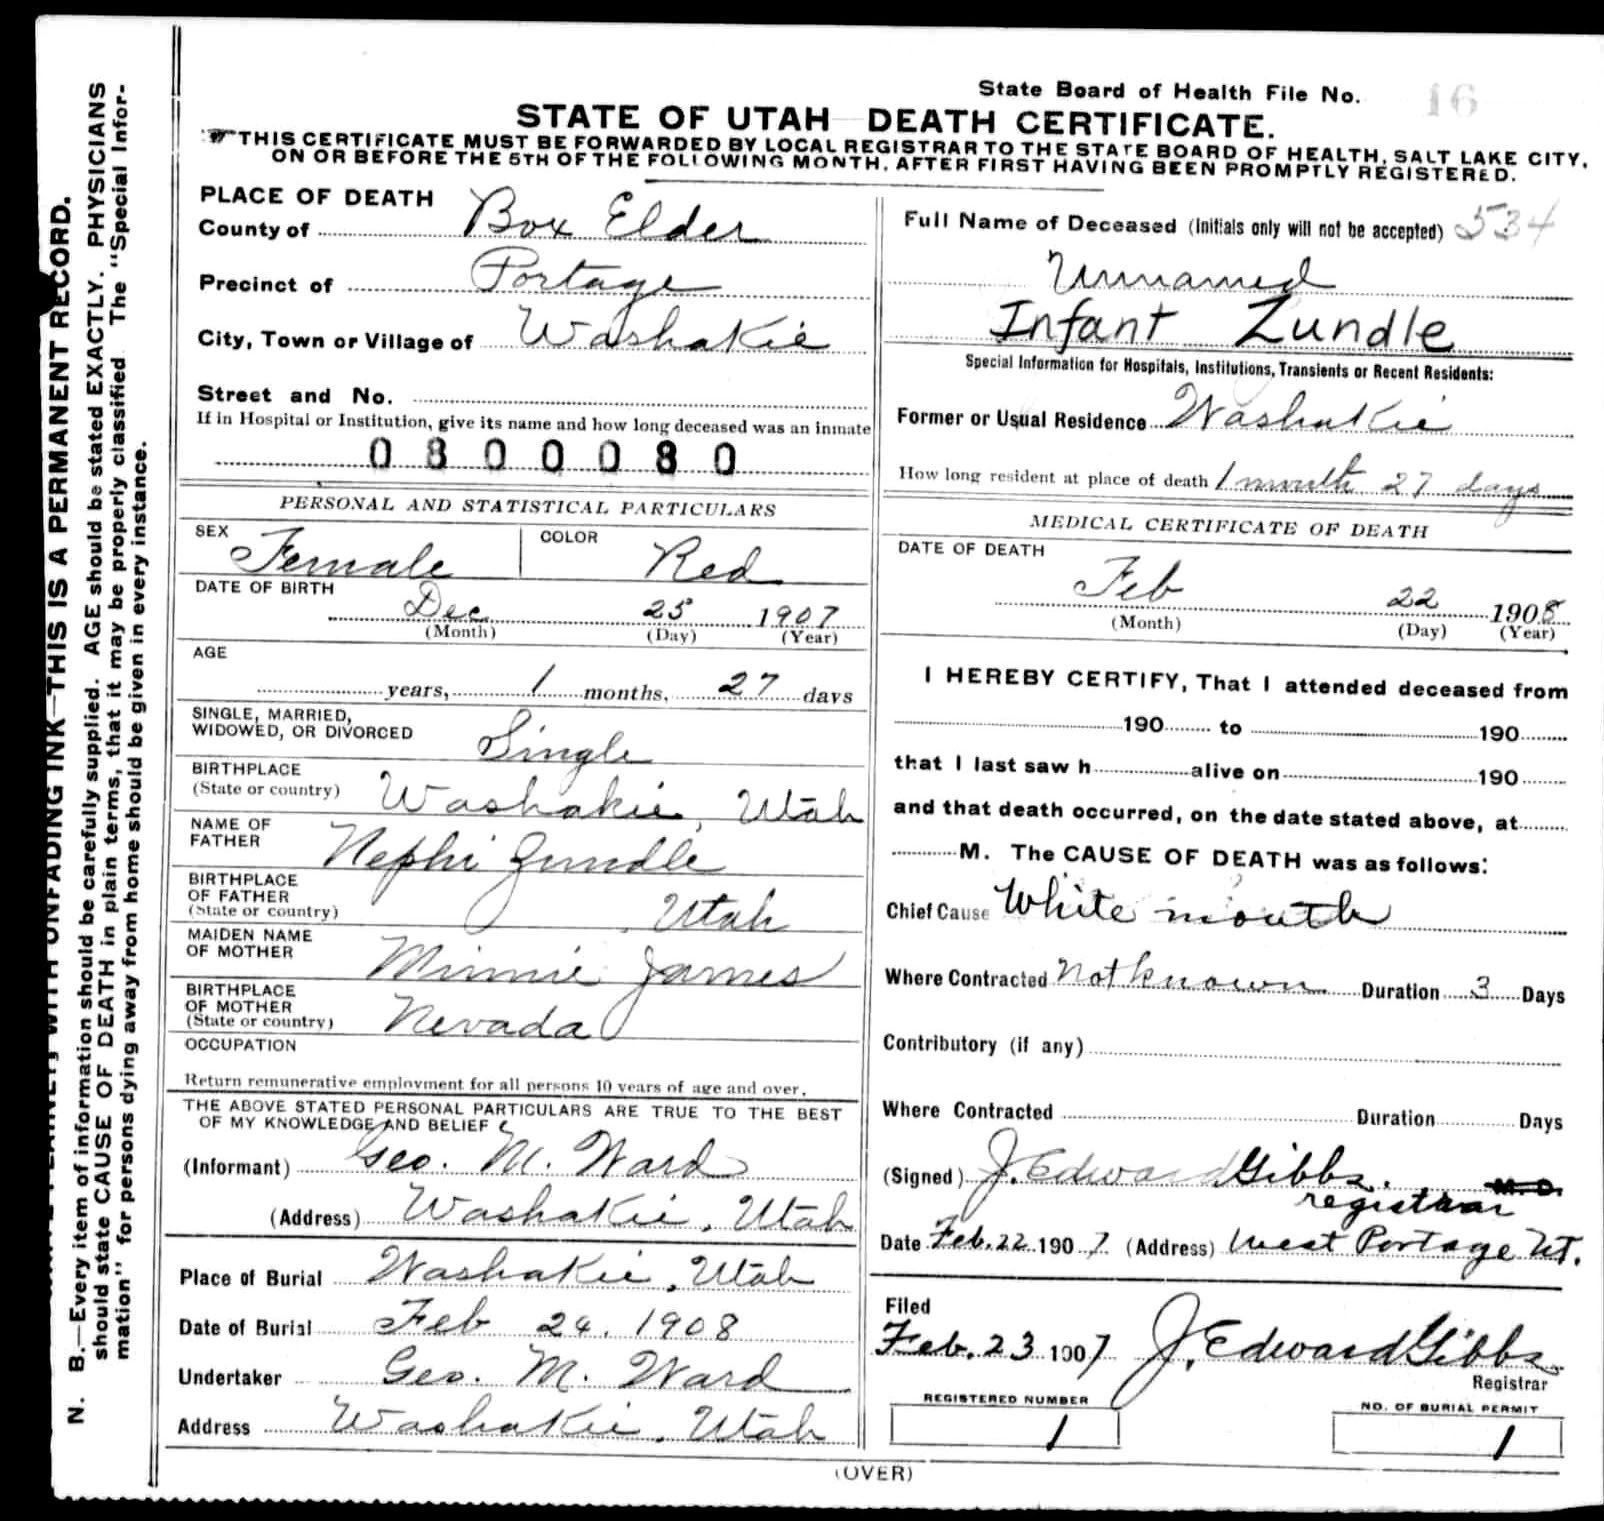 State Board of Health File No. 16
STATE OF UTAH DEATH CERTIFICATE.
THIS CERTIFICATE MUST BE FORWARDED BY LOCAL REGISTRAR TO THE STATE BOARD OF HEALTH, SALT LAKE CITY,
ON OR BEFORE THE 5TH OF THE FOLLOWING MONTH, AFTER FIRST HAVING BEEN PROMPTLY REGISTERED.
PLACE OF DEATH
County of Box Elder
Precinct of Portage
City, Town or Village of Washakie
Street and No.
If in Hospital or Institution, give its name and how long deceased was an inmate
0 8 0 0 0 8 0
PERSONAL AND STATISTICAL PARTICULARS
SEX Female COLOR Red
DATE OF BIRTH
Dec 25 1907
(Month) (Day) (Year)
AGE
years, 1 months, 27 days
SINGLE, MARRIED,
WIDOWED, OR DIVORCED Single
BIRTHPLACE
(State or country) Washakie, Utah
NAME OF
FATHER Nephi Zundle
BIRTHPLACE
OF FATHER
(State or country) Utah
MAIDEN NAME
OF MOTHER Minnie James
BIRTHPLACE
OF MOTHER
(State or country) Nevada
OCCUPATION
Return remunerative employment for all persons 10 years of age and over.
THE ABOVE STATED PERSONAL PARTICULARS ARE TRUE TO THE BEST
OF MY KNOWLEDGE AND BELIEF
(Informant) Geo. M. Ward
(Address) Washakie, Utah
Place of Burial Washakie, Utah
Date of Burial Feb 24, 1908
Undertaker Geo. M. Ward
Address Washakie, Utah
Full Name of Deceased (Initials only will not be accepted) 534
Unnamed
Infant Zundle
Special Information for Hospitals, Institutions, Transients or Recent Residents:
Former or Usual Residence Washakie
How long resident at place of death 1 month 27 days
MEDICAL CERTIFICATE OF DEATH
DATE OF DEATH
Feb 22 1908
(Month) (Day) (Year)
I HEREBY CERTIFY, That I attended deceased from
190 to 190
that I last saw h alive on 190
and that death occurred, on the date stated above, at
M. The CAUSE OF DEATH was as follows:
Chief Cause White mouth
Where Contracted Not known Duration 3 Days
Contributory (if any)
Where Contracted Duration Days
(Signed) J. Edward Gibbs. M. D.
registrar
Date Feb. 22 1907. (Address) West Portage UT.
Filed
Feb. 23 1907 J. Edward Gibbs
Registrar
REGISTERED NUMBER
1
NO. OF BURIAL PERMIT
1
(OVER)
WITH UNFADING INK—THIS IS A PERMANENT RECORD.
N. B.—Every item of information should be carefully supplied. AGE should be stated EXACTLY. PHYSICIANS
should state CAUSE OF DEATH in plain terms, that it may be properly classified. The "Special Infor-
mation" for persons dying away from home should be given in every instance.